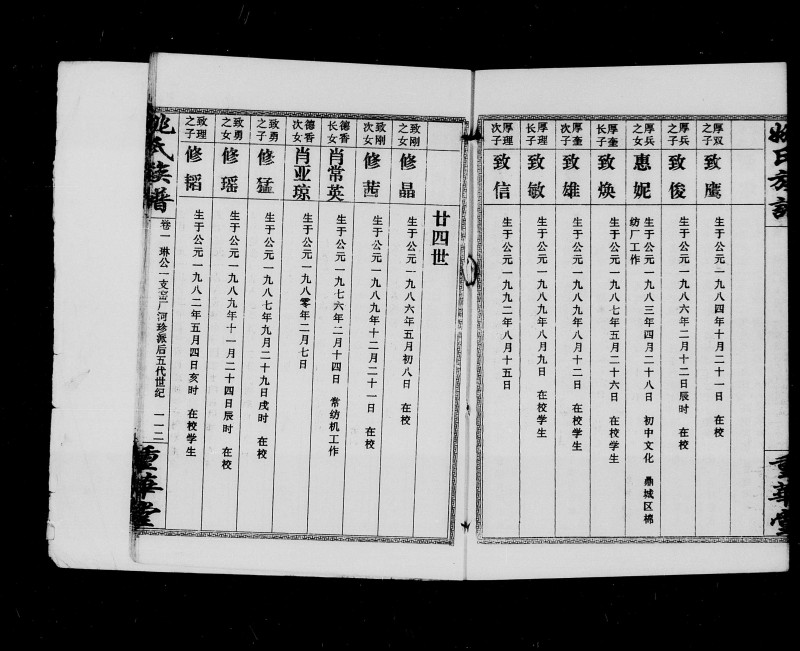 姚氏族谱
重华堂
厚双之子 致鹰 生于公元一九八四年十月二十一日 在校
厚兵之子 致俊 生于公元一九八六年二月十二日辰时 在校
厚兵之女 惠妮 生于公元一九八三年四月二十八日 初中文化 鼎城区棉
纺厂工作
厚奎长子 致焕 生于公元一九八七年五月二十六日 在校学生
厚奎次子 致雄 生于公元一九八九年八月十二日 在校学生
厚理长子 致敏 生于公元一九八九年八月九日 在校学生
厚理次子 致信 生于公元一九九二年八月十五日
廿四世
致刚之女 修晶 生于公元一九八六年五月初八日 在校
致刚次女 修茜 生于公元一九八九年十二月二十一日 在校
德香长女 肖常英 生于公元一九七六年二月十四日 常纺机工作
德香次女 肖亚琼 生于公元一九八零年二月七日
致勇之子 修猛 生于公元一九八七年九月二十九日戌时 在校
致勇之女 修瑶 生于公元一九八九年十一月二十四日辰时 在校
致理之子 修韬 生于公元一九八二年五月四日亥时 在校学生
姚氏族谱 卷一 琳公一支 厂河珍派后五代世纪 一一二
重华堂